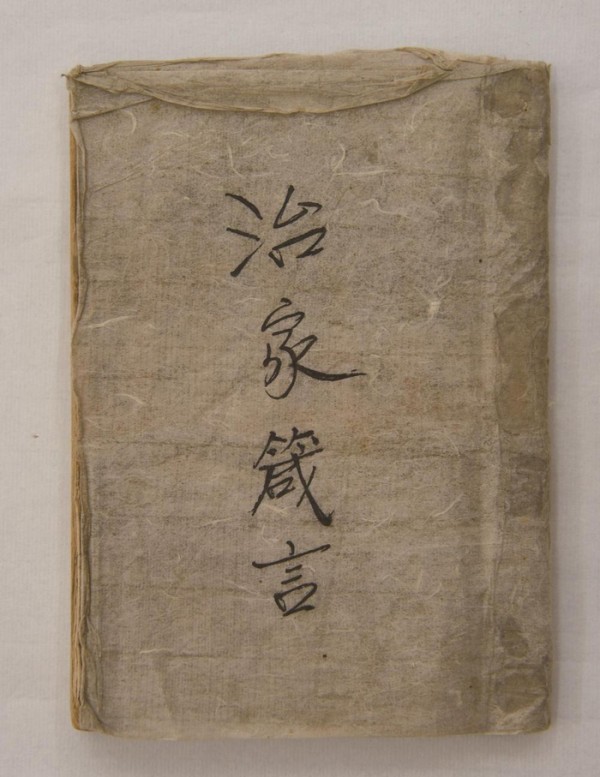 治家箴言